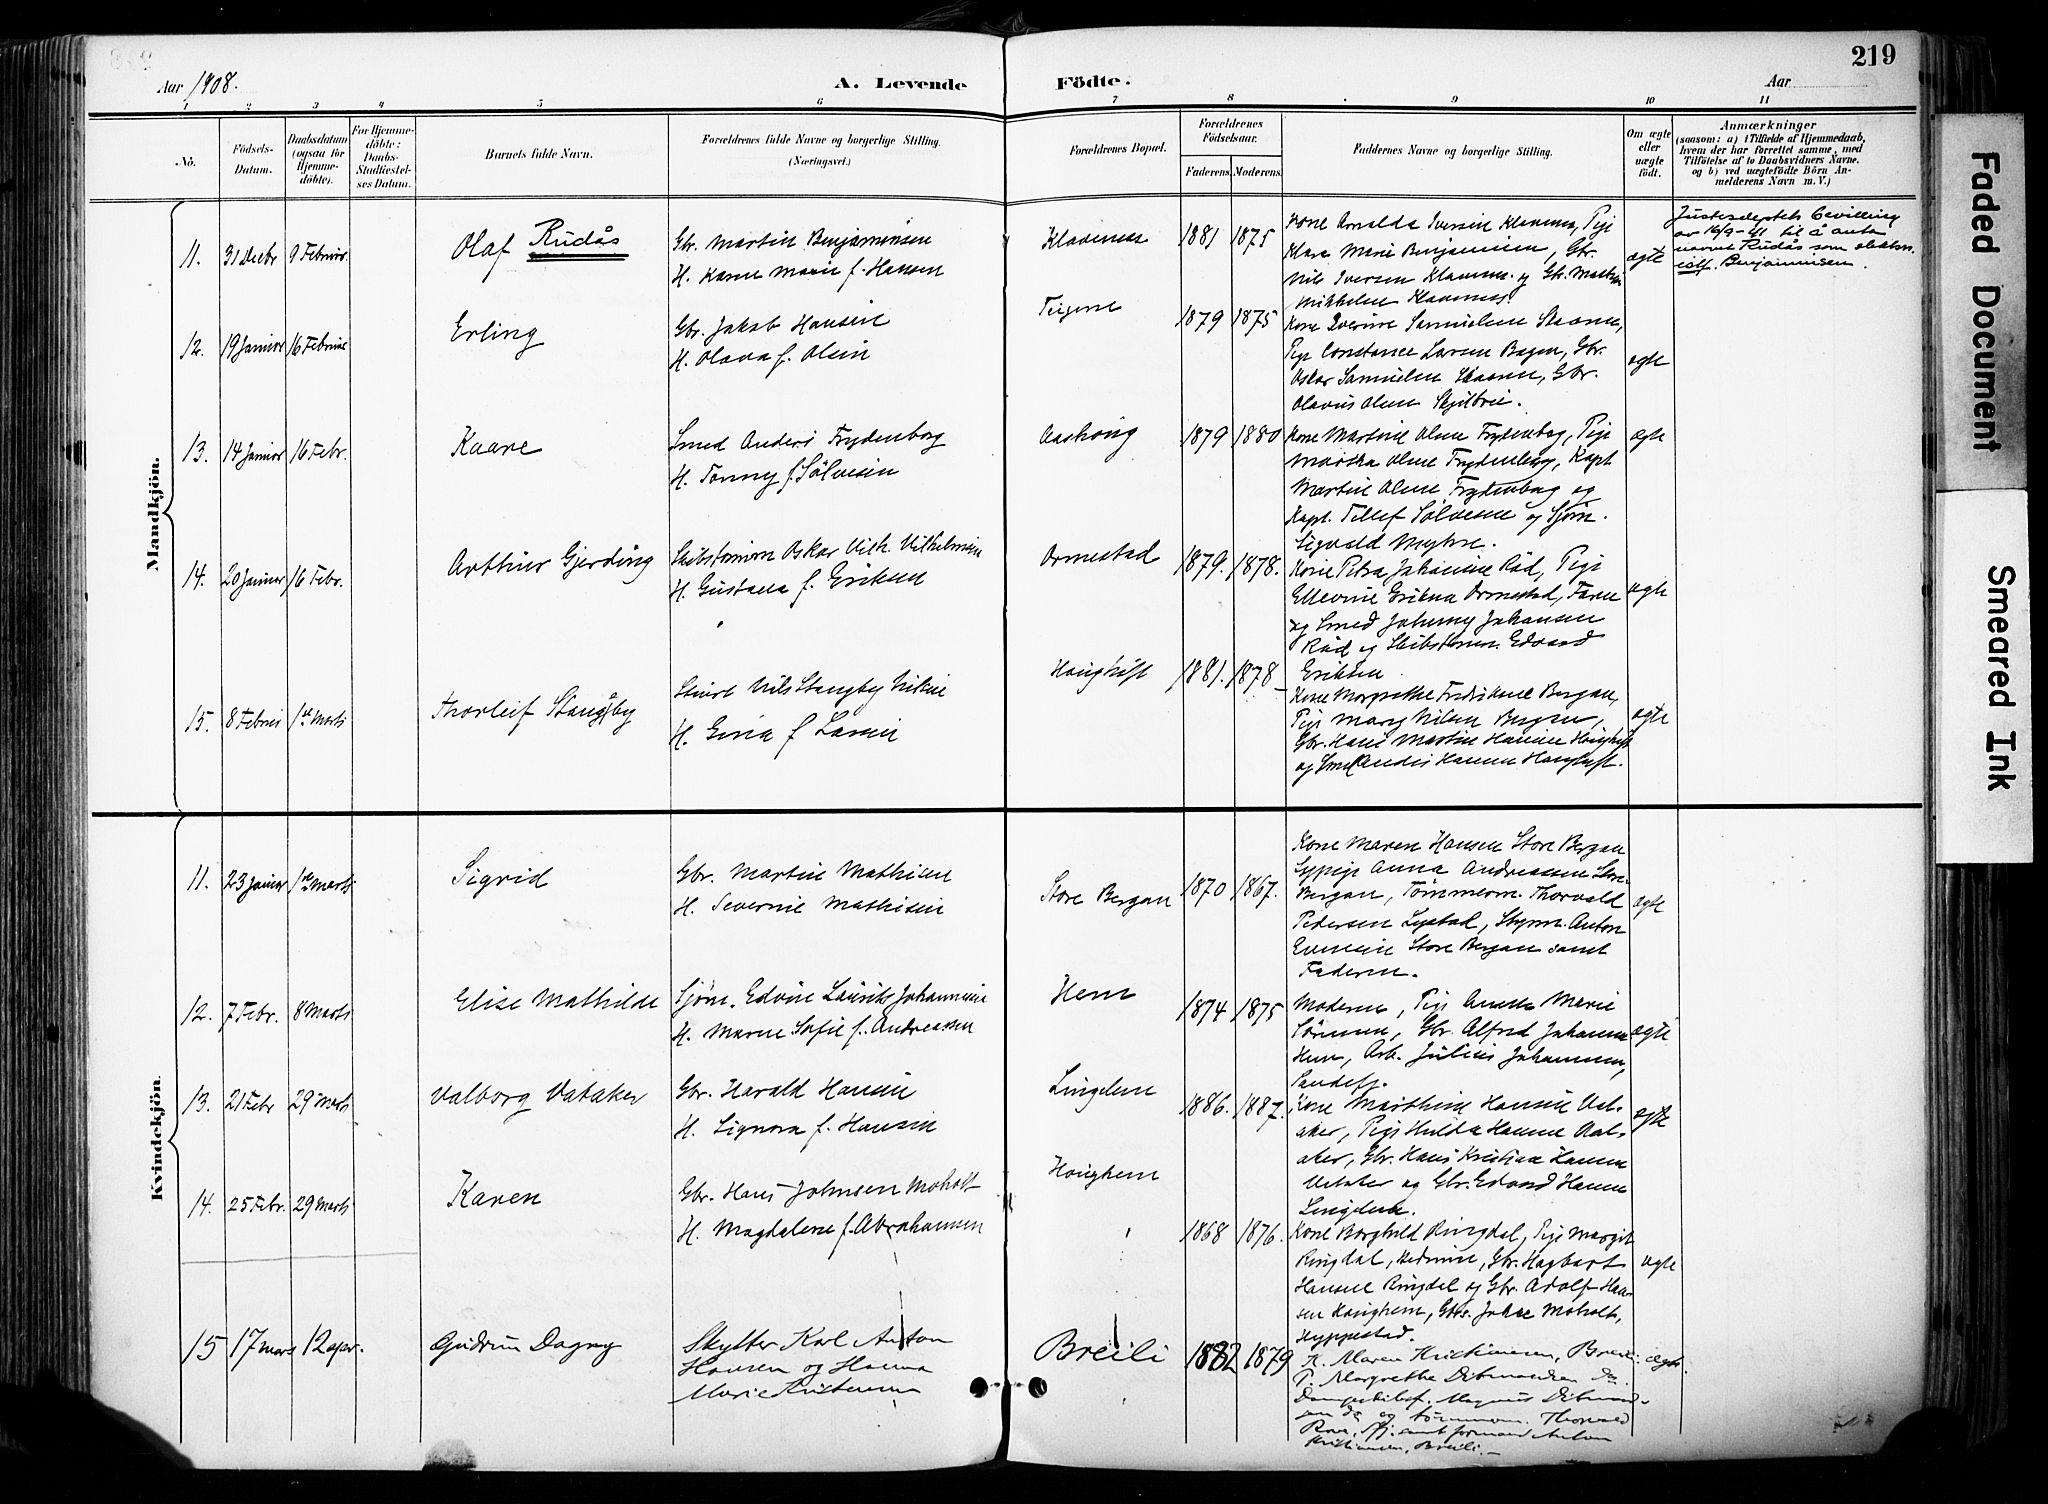 219
Aar 1908.
A. Levende
Födte.
Aar
1 2 3 4 5 6 7 8 9 10 11
No.
Födsels-
Datum.
Daabsdatum
(ogsaa for
Hjemme-
döbte).
For Hjemme-
döbte:
Daabs-
Stadfæstel-
ses Datum.
Barnets fulde Navn.
Forældrenes fulde Navne og borgerlige Stilling.
(Næringsvei.)
Forældrenes Bopæl.
Forældrenes
Födselsaar.
Faderens.
Moderens.
Faddernes Navne og borgerlige Stilling.
Om ægte
eller
uægte
födt.
Anmærkninger
(saasom: a) i Tilfælde af Hjemmedaab,
hvem der har forrettet samme, med
Tilföielse af to Daabsvidners Navne.
og b) ved uægtefödte Börn An-
melderens Navn m. V.)
Mandkjön.
11. 31 Decbr 9 Februar
Olaf Rudås
Gbr. Martin Benjaminsen
H. Karen Marie f. Hansen
Klavenæs
1881 1875
Klara Marie Benjaminsen, Gbr.
Nils Iversen Klavenæs og Gbr. Mathias
Mikkelsen Klavenæs
ægte
Justisdeptets bevilling
av 16/9-41 til å anta
navnet Rudås som slektsn.
istf. Benjaminsen.
12. 19 Januar 16 Februar
Erling
Gbr. Jakob Hansen
H. Olava f. Olsen
1879 1875
Kone Iverine Samuelsen
Pige Constance Larsen Bergan, Gbr.
Oskar Samuelsen
Gbr.
Olavus Olsen
ægte
13. 14 Januar 16 Febr.
Kaare
Smed Anders Frydenborg
H. Tonny f. Sölvesen
Aashoug
1879 1880
Kone Martine Olsen Frydenborg, Pige
Martha Olsen Frydenborg, Kapt.
Martin Olsen Frydenborg og
Kapt. Tellef Sölvesen og Sjöm.
Sigvald
ægte
14. 20 Januar 16 Febr.
Arthur Gjerding
Skibstömm Oskar Vilh. Vilhelmsen
H. Gustava f. Eriksen
Ormestad
1879. 1878.
Kone Petra Johansen Råd, Pige
Ellevine Eriksen Ormestad, Faren
og Smed Johnny Johansen
Råd og Skibstömm Edvard
Eriksen
ægte
15. 8 Februar 1ste Marts
Thorleif Stangeby
Nils Stangeby Nilsen
H. Gina f. Larsen
Haughöst
1881. 1878
Kone Margrethe Fredriksen Bergan,
Pige Mary Nilsen Bergan,
Gbr. Hans Martin Hansen
og Smed Anders Hansen
ægte
Kvindekjön.
11. 23 Januar 1ste Marts
Sigrid
Gbr. Martin Mathisen
H. Severine Mathisen
Store Bergan
1870 1867.
Kone Maren Hansen Store Bergan
Sypige Anna Andreassen Store
Bergan, Tömmerm. Thorvald
Pedersen Lystad, Styrm. Anton
Evensen Store Bergan samt
Faderen.
ægte
12. 7 Febr. 8 Marts
Elise Mathilde
Sjöm. Edvin Laurits Johannesen
H. Maren Sofie f. Andreassen
Hem
1874 1875
Moderen, Pige Anna Marie
Sörensen, Gbr. Alfred Johannesen
Hem, Arb. Julius Johannesen,
Sandefj.
ægte
13. 21 Febr 29 Marts
Valborg Vataker
Gbr. Harald Hansen
H. Signora f. Hansen
Lingelem
1886. 1887.
Kone Marthine Hansen Vat-
aker, Pige Hulda Hansen Vat-
aker, Gbr. Hans Kristian Hansen
Vataker og Gbr. Edvard Hansen
Lingelem.
ægte
14. 25 Febr. 29 Marts
Karen
Gbr. Hans Johnsen Moholt
H. Magdalene f. Abrahamsen
Haughem
1868 1876.
Kone Borghild Ringdal, Pige Margit
Ringdal, Gbr. Hagbart
Hansen Ringdal og Gbr. Adolf Han-
sen Haughem, Gbr. Moholt,
Hyppestad.
ægte
15 17 mars 12 apr.
Gudrun Dagny
Skytter Karl Anton
Hansen og Hanna
Marie Kristiansen
Breili
1882 1879
K. Maren Kristiansen, Breili.
P. Margrethe
Magnus
Thorvald
samt formand Anton
Kristiansen, Breili.
ægte.
Faded Document
Smeared Ink